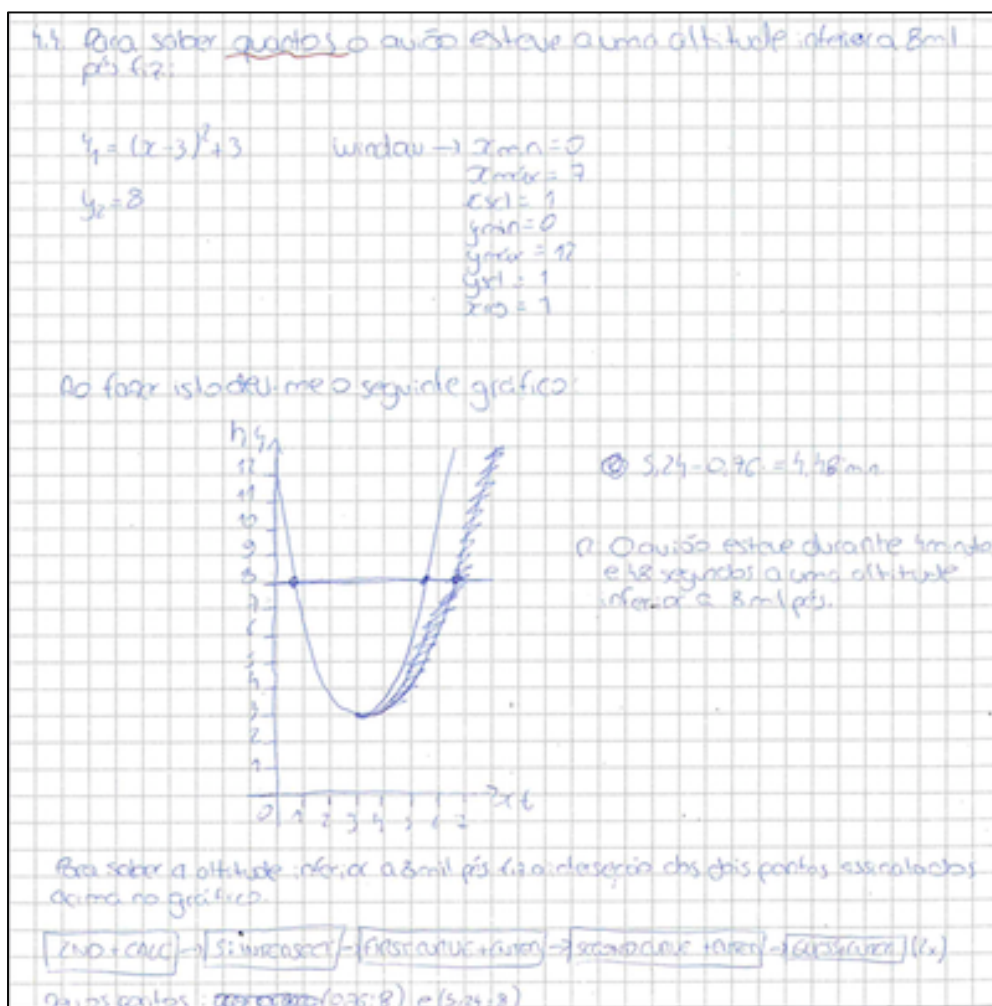 4.4. Para saber quantos o avião esteve a uma altitude inferior a 8mil
pés fiz:
y₁ = (x-3)²+3
y₂ = 8
window → xmin=0
xmáx= 7
xscl= 1
ymin=0
ymáx= 12
yscl= 1
xres = 1
Ao fazer isto deu-me o seguinte gráfico:
h, y
12
11
10
9
8
7
6
5
4
3
2
1
0 1 2 3 4 5 6 7
x t
5,24-0,76 = 4,48 min
R: O avião esteve durante 4 minutos
e 48 segundos a uma altitude
inferior a 8 mil pés.
Para saber a altitude inferior a 8mil pés fiz a interseção dos dois pontos assinalados
acima no gráfico.
2ND + CALC → 5: → → → (2x)
os pontos: (0,76; 8) e (5,24; 8)